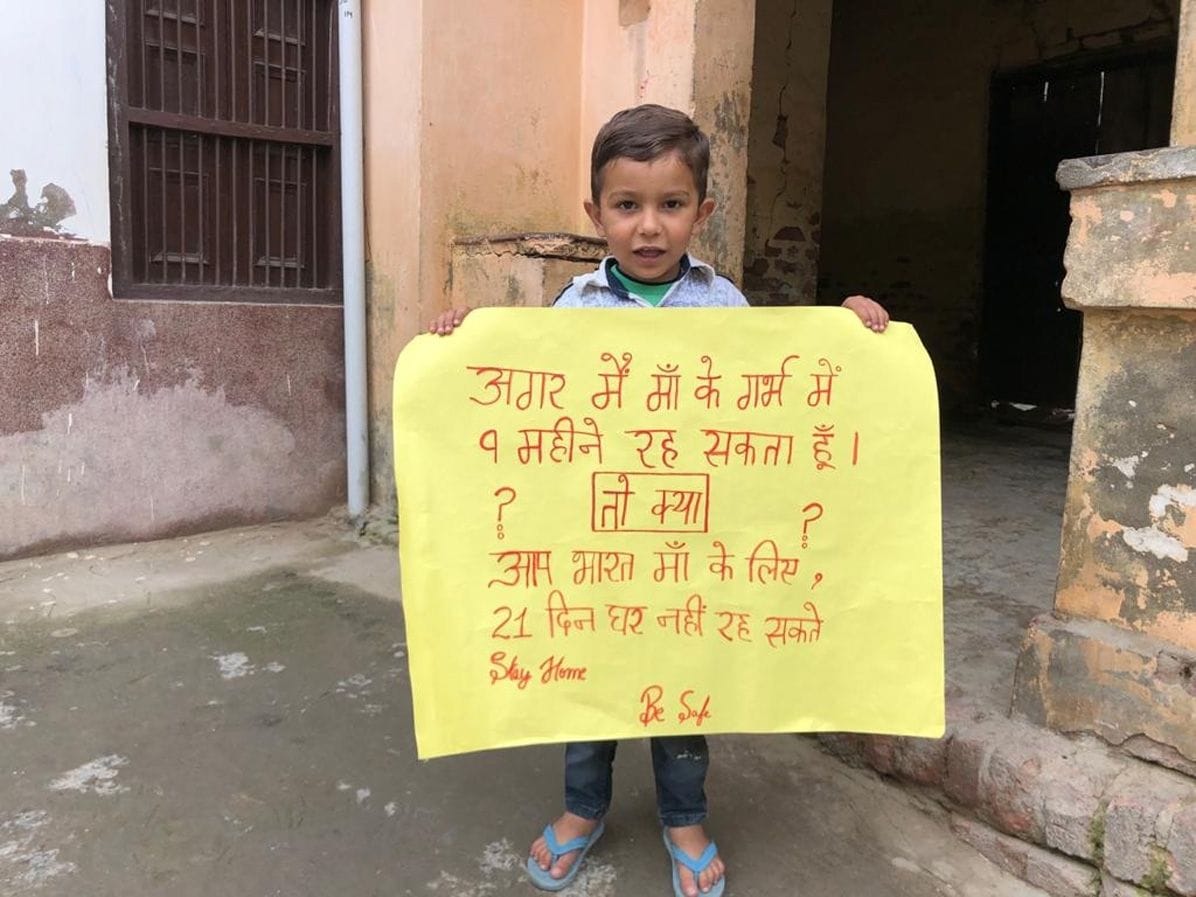 अगर मैं माँ के गर्भ में
९ महीने रह सकता हूँ ।
? तो क्या ?
आप भारत माँ के लिए ,
21 दिन घर नहीं रह सकते
Stay Home
Be Safe